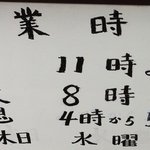 業時
11時
8時
4時から5
休日 水曜